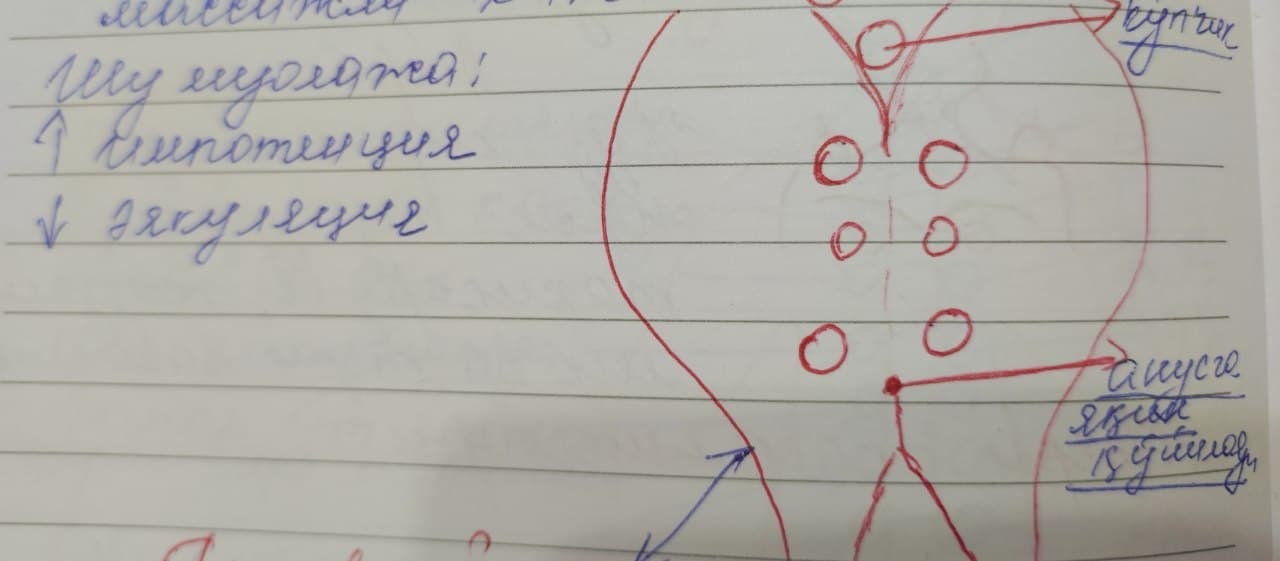 Шу муолажа:
↑ импотенция
↓ эякуляция
купчик
анусга
яқин
қўйилади